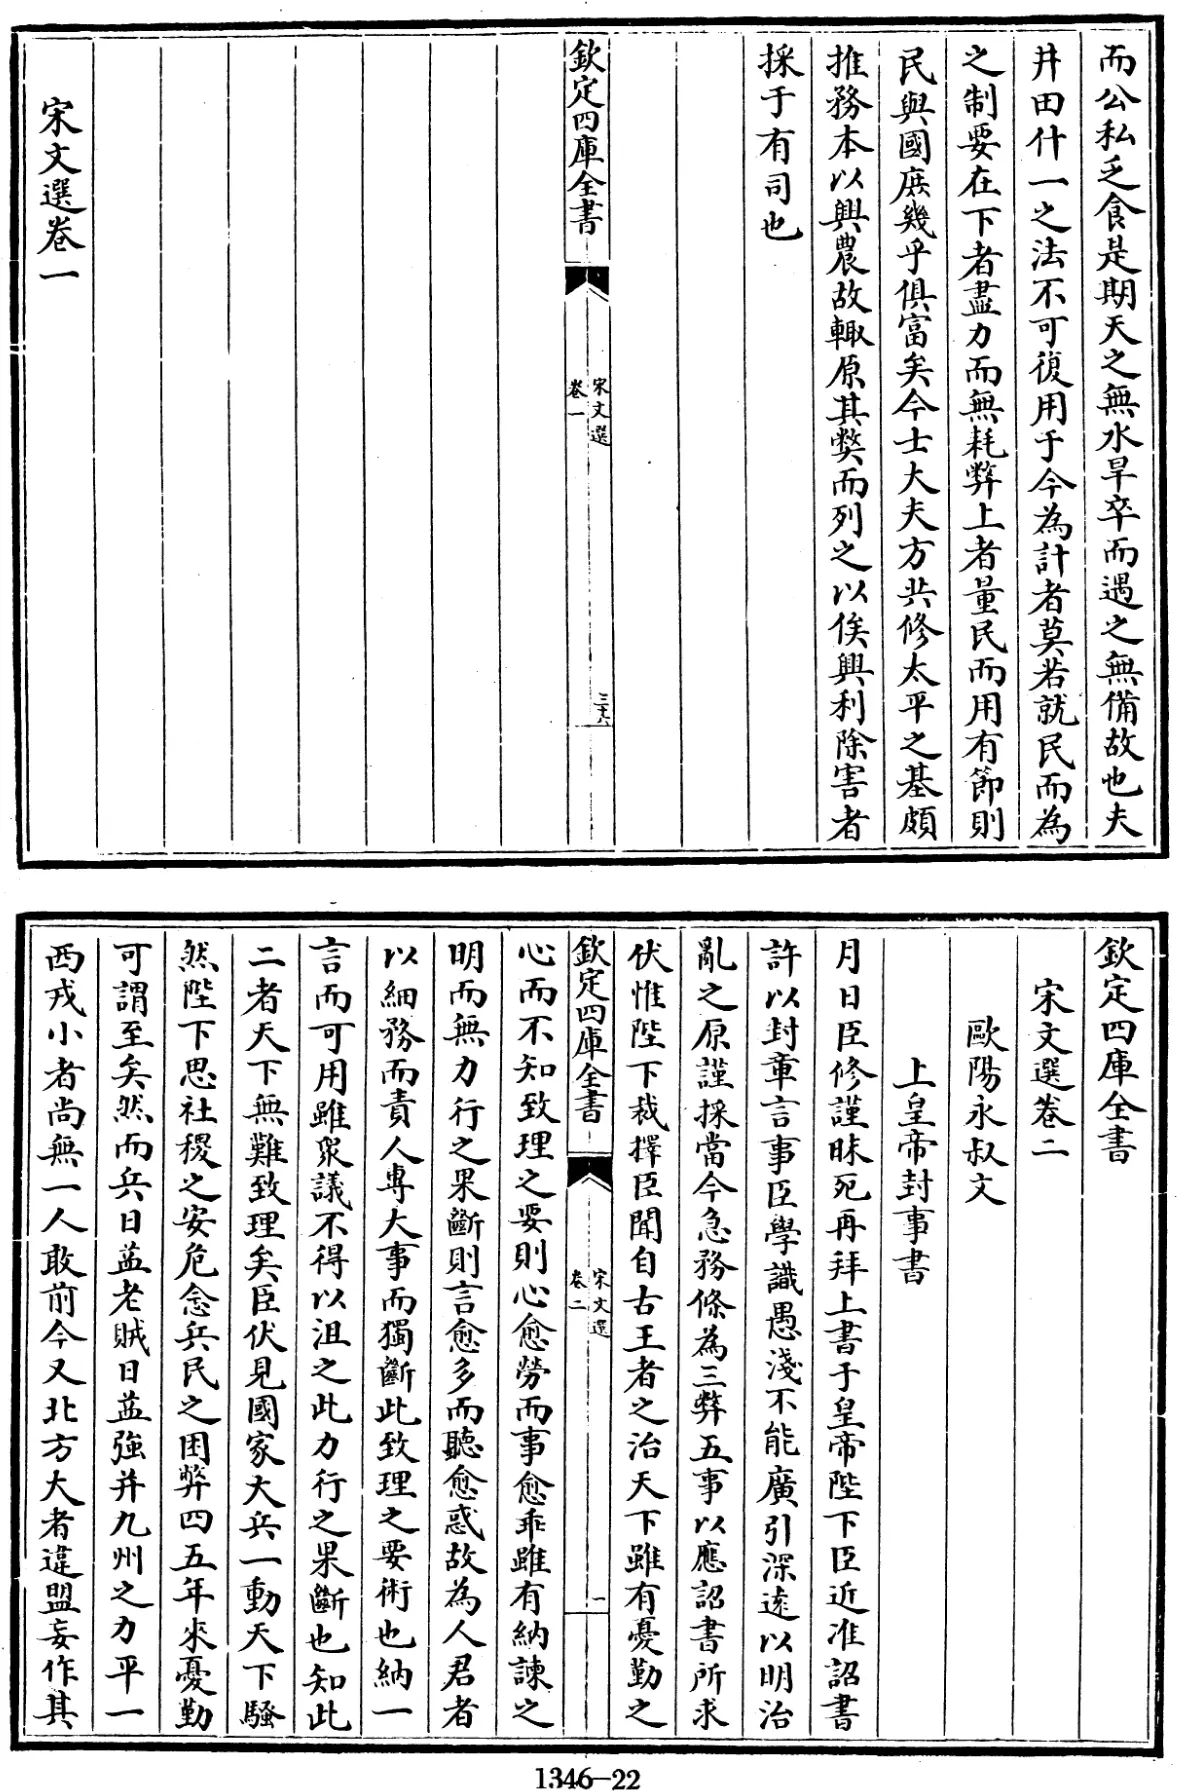 而公私乏食是期天之無水旱卒而遇之無備故也夫
井田什一之法不可復用于今為計者莫若就民而為
之制要在下者盡力而無耗弊上者量民而用有節則
民與國庶幾乎俱富矣今士大夫方共修太平之基頗
推務本以興農故輒原其弊而列之以俟興利除害者
採于有司也
欽定四庫全書
宋文選
卷一
三十六
宋文選卷一
欽定四庫全書
宋文選卷二
歐陽永叔文
上皇帝封事書
月日臣修謹昧死再拜上書于皇帝陛下臣近准詔書
許以封章言事臣學識愚淺不能廣引深遠以明治
亂之原謹採當今急務條為三弊五事以應詔書所求
伏惟陛下裁擇臣聞自古王者之治天下雖有憂勤之
欽定四庫全書
宋文選
卷二
一
心而不知致理之要則心愈勞而事愈乖雖有納諫之
明而無力行之果斷則言愈多而聽愈惑故為人君者
以細務而責人專大事而獨斷此致理之要術也納一
言而可用雖衆議不得以沮之此力行之果斷也知此
二者天下無難致理矣臣伏見國家大兵一動天下騷
然陛下思社稷之安危念兵民之困弊四五年來憂勤
可謂至矣然而兵日益老賊日益強并九州之力平一
西戎小者尚無一人敢前今又北方大者違盟妄作其
1346-22